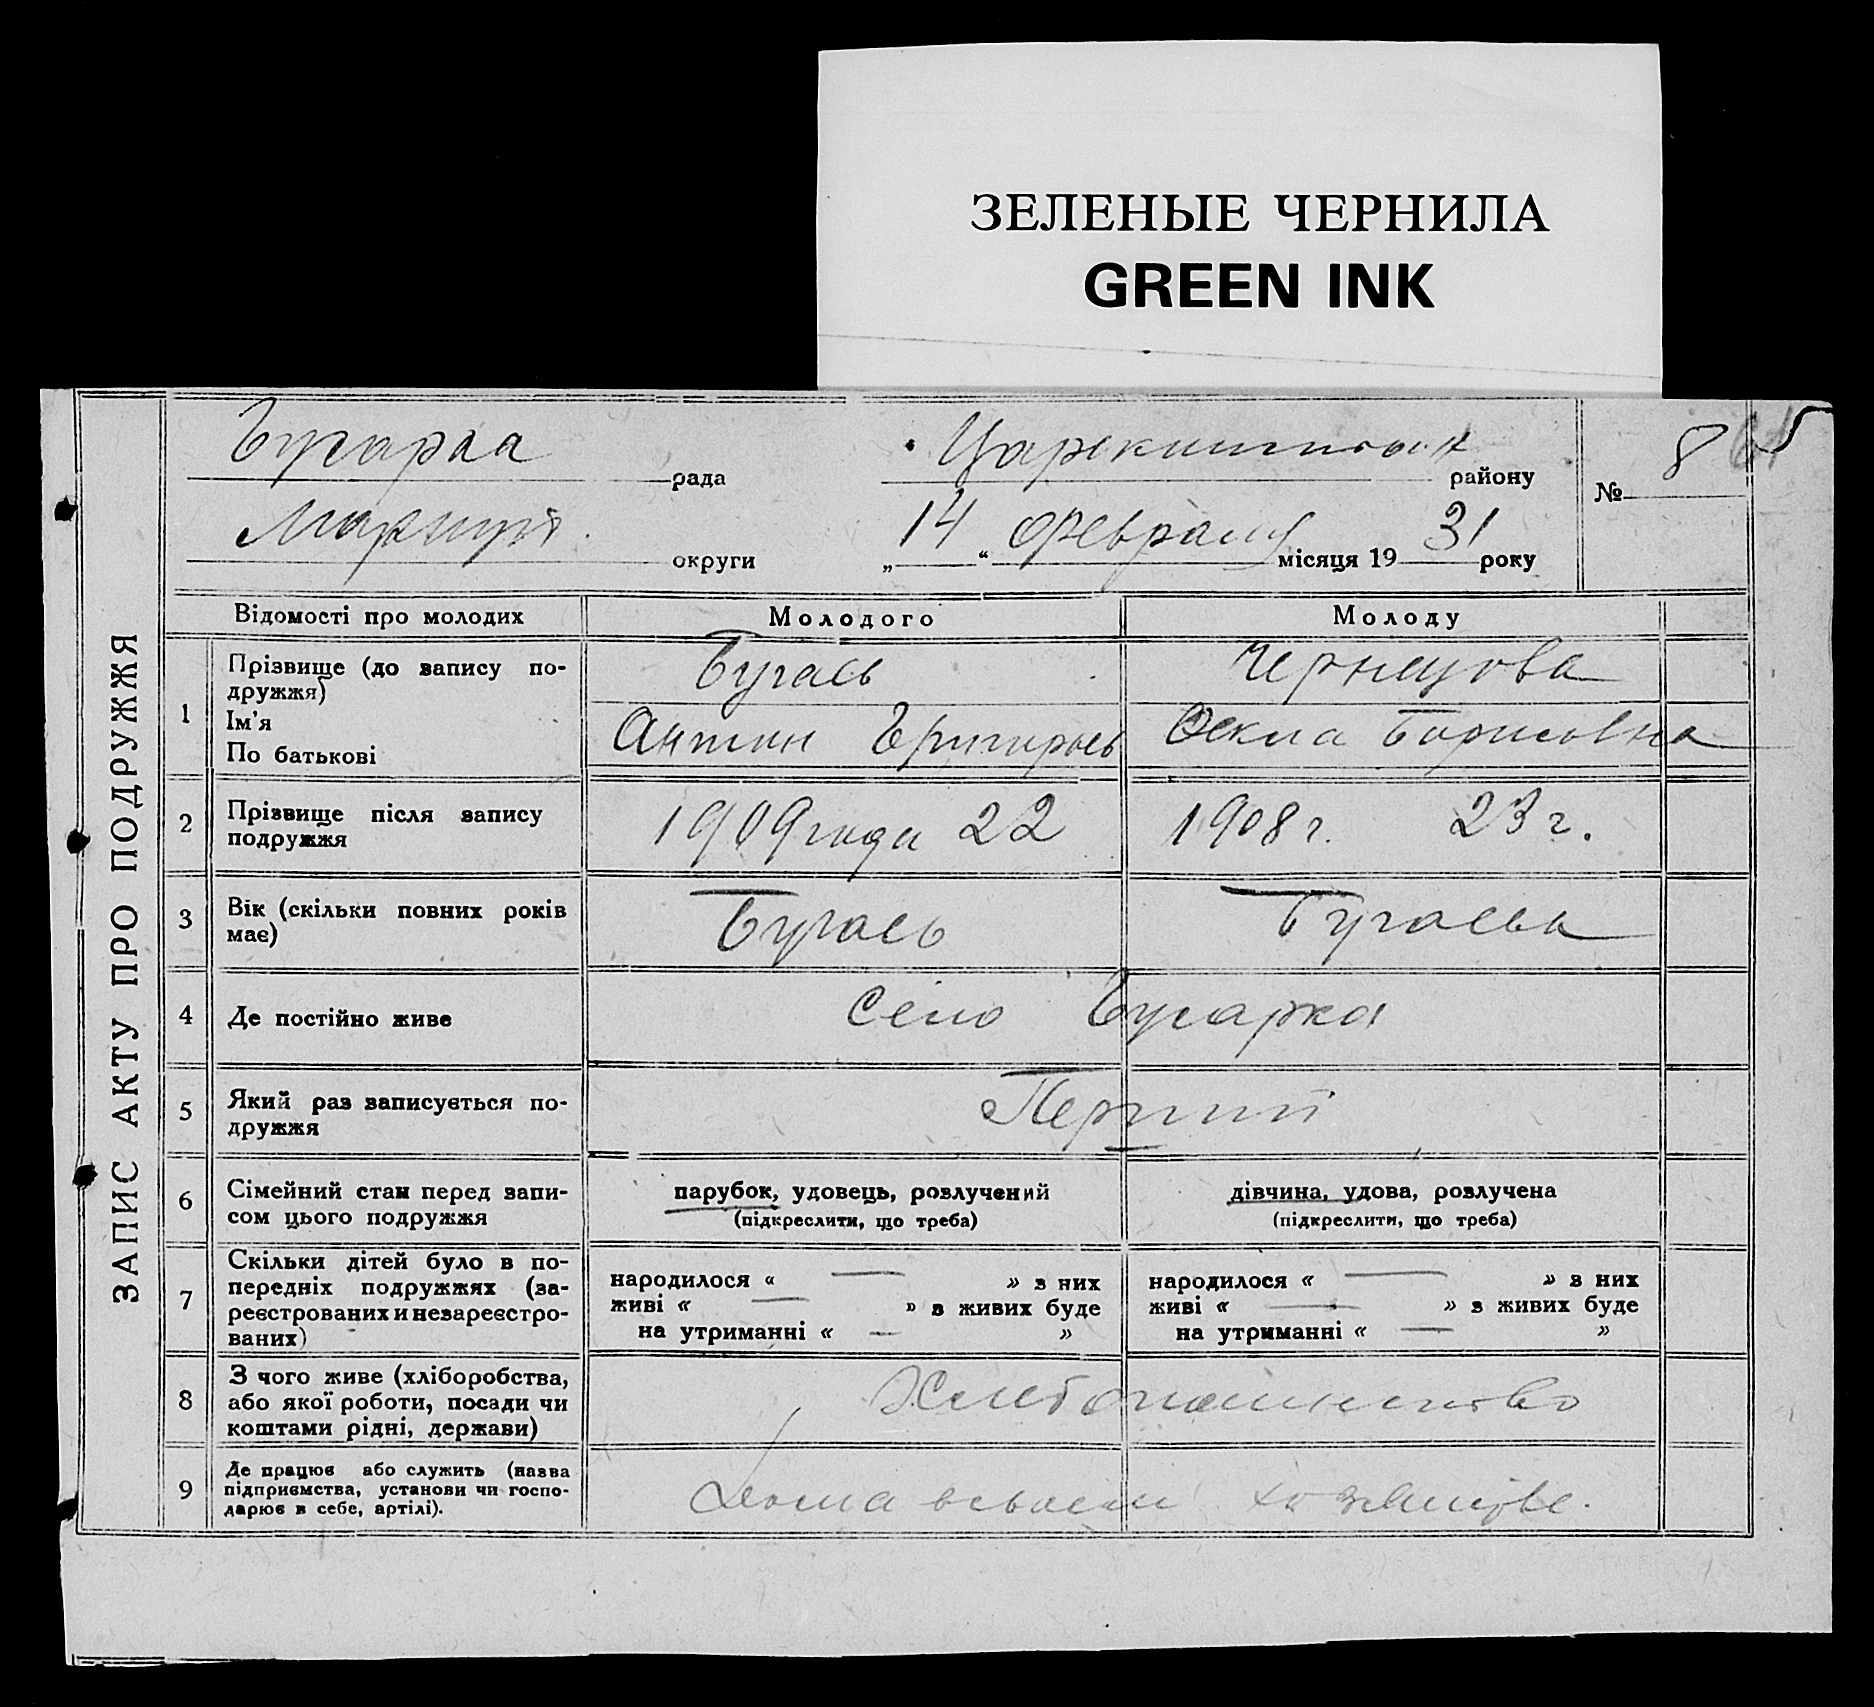 ЗЕЛЕНЫЕ ЧЕРНИЛА
GREEN INK
рада
району
№ 8
округи
„14“ февраля місяця 1931 року
ЗАПИС АКТУ ПРО ПОДРУЖЖЯ
Відомості про молодих
Молодого
Молоду
1
Прізвище (до запису по-
дружжя)
Ім'я
По батькові
Бугаев
Чернецова
Антон Григорьев
Фекла Борисовна
2
Прізвище після запису
подружжя
1909 года 22
1908 г. 23 г.
3
Вік (скільки повних років
має)
Бугаев
Бугаева
4
Де постійно живе
Село Бугарка
5
Який раз записується по-
дружжя
Перший
6
Сімейний стан перед запи-
сом цього подружжя
парубок, удовець, розлучений
(підкреслити, що треба)
дівчина, удова, розлучена
(підкреслити, що треба)
7
Скільки дітей було в по-
передніх подружжях (за-
реєстрованих и незареєстро-
ваних)
народилося « — » з них
живі « — » з живих буде
на утриманні « — »
народилося « — » з них
живі « — » з живих буде
на утриманні « — »
8
З чого живе (хліборобства,
або якої роботи, посади чи
коштами рідні, держави)
Хлебопашество
9
Де працює або служить (назва
підприємства, установи чи госпо-
дарює в себе, артілі).
Дома в своем хозяистве.